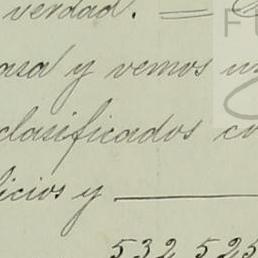 verdad. =
asa y vemos
clasificados co
icios y
532 525